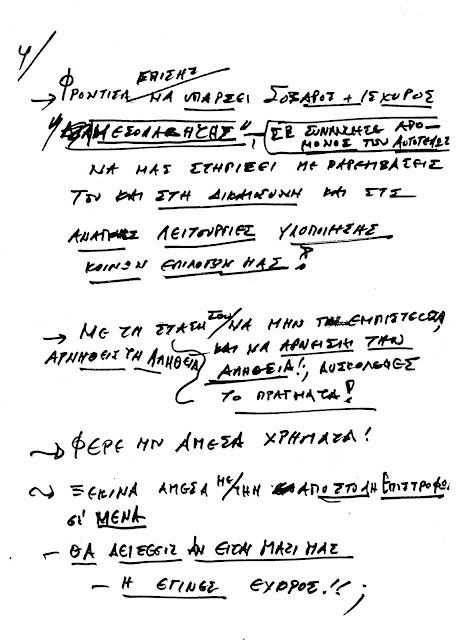 4/
ΕΠΙΣΗΣ
→ ΦΡΟΝΤΙΣΑ ΝΑ ΥΠΑΡΞΕΙ ΣΟΒΑΡΟΣ + ΙΣΧΥΡΟΣ
"ΜΕΣΟΛΑΒΗΤΗΣ" - ΣΕ ΣΥΝΑΝΤΗΣΕ ΔΡΟ-
ΜΟΝΟΣ ΤΟΥ
ΝΑ ΜΑΣ ΣΤΗΡΙΞΕΙ ΜΕ ΠΑΡΕΜΒΑΣΕΙΣ
ΤΟΥ ΚΑΙ ΣΤΗ ΔΙΚΑΙΟΣΥΝΗ ΚΑΙ ΣΤΙΣ
ΑΝΑΓΚΕΣ ΛΕΙΤΟΥΡΓΙΕΣ ΥΛΟΠΟΙΗΣΗΣ
ΚΟΙΝΩΝ ΕΠΙΛΟΓΩΝ ΜΑΣ!
→ ΜΕ ΤΗ ΣΤΑΣΗ ΣΟΥ / ΝΑ ΜΗΝ ΕΜΠΙΣΤΕΥΤΕΙΣ,
ΑΡΝΗΘΕΙΣ ΤΗ ΑΛΗΘΕΙΑ ΚΑΙ ΝΑ ΑΡΝΕΙΣΑΙ ΤΗΝ
ΑΛΗΘΕΙΑ!, ΔΥΣΚΟΛΕΨΕΣ
ΤΟ ΠΡΑΓΜΑΤΑ!
→ ΦΕΡΕ ΜΝ ΑΜΕΣΑ ΧΡΗΜΑΤΑ!
→ ΞΕΚΙΝΑ ΑΜΕΣΑ ΜΕ/ΤΗΝ ΑΠΟΣΤΟΛΗ ΕΠΙΣΤΡΟΦΩΝ
Σ' ΜΕΝΑ
- ΘΑ ΔΕΙΞΕΙΣ ΑΝ ΕΙΣΑΙ ΜΑΖΙ ΜΑΣ
- Η ΕΓΙΝΕΣ ΕΧΘΡΟΣ!! ;